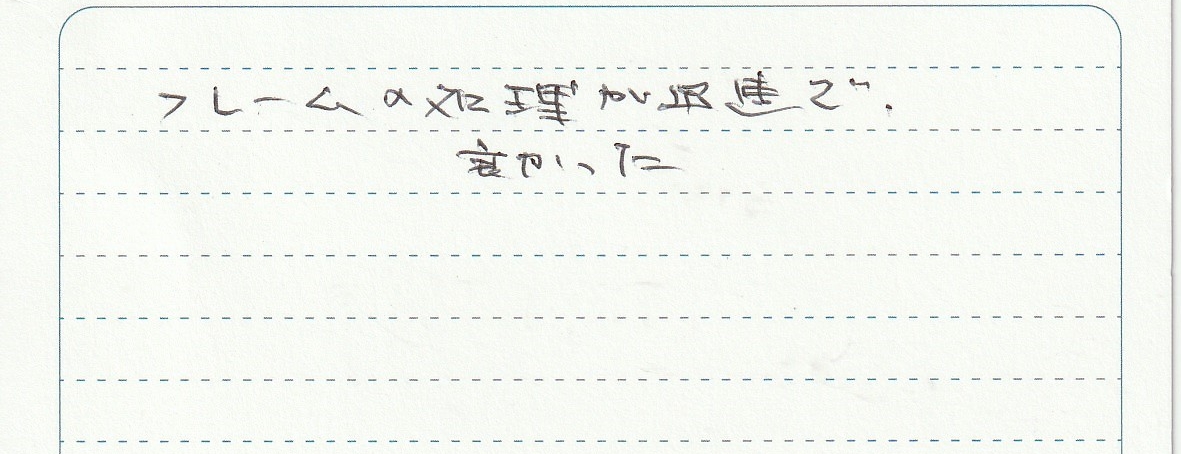 フレームの処理が迅速で、
良かった